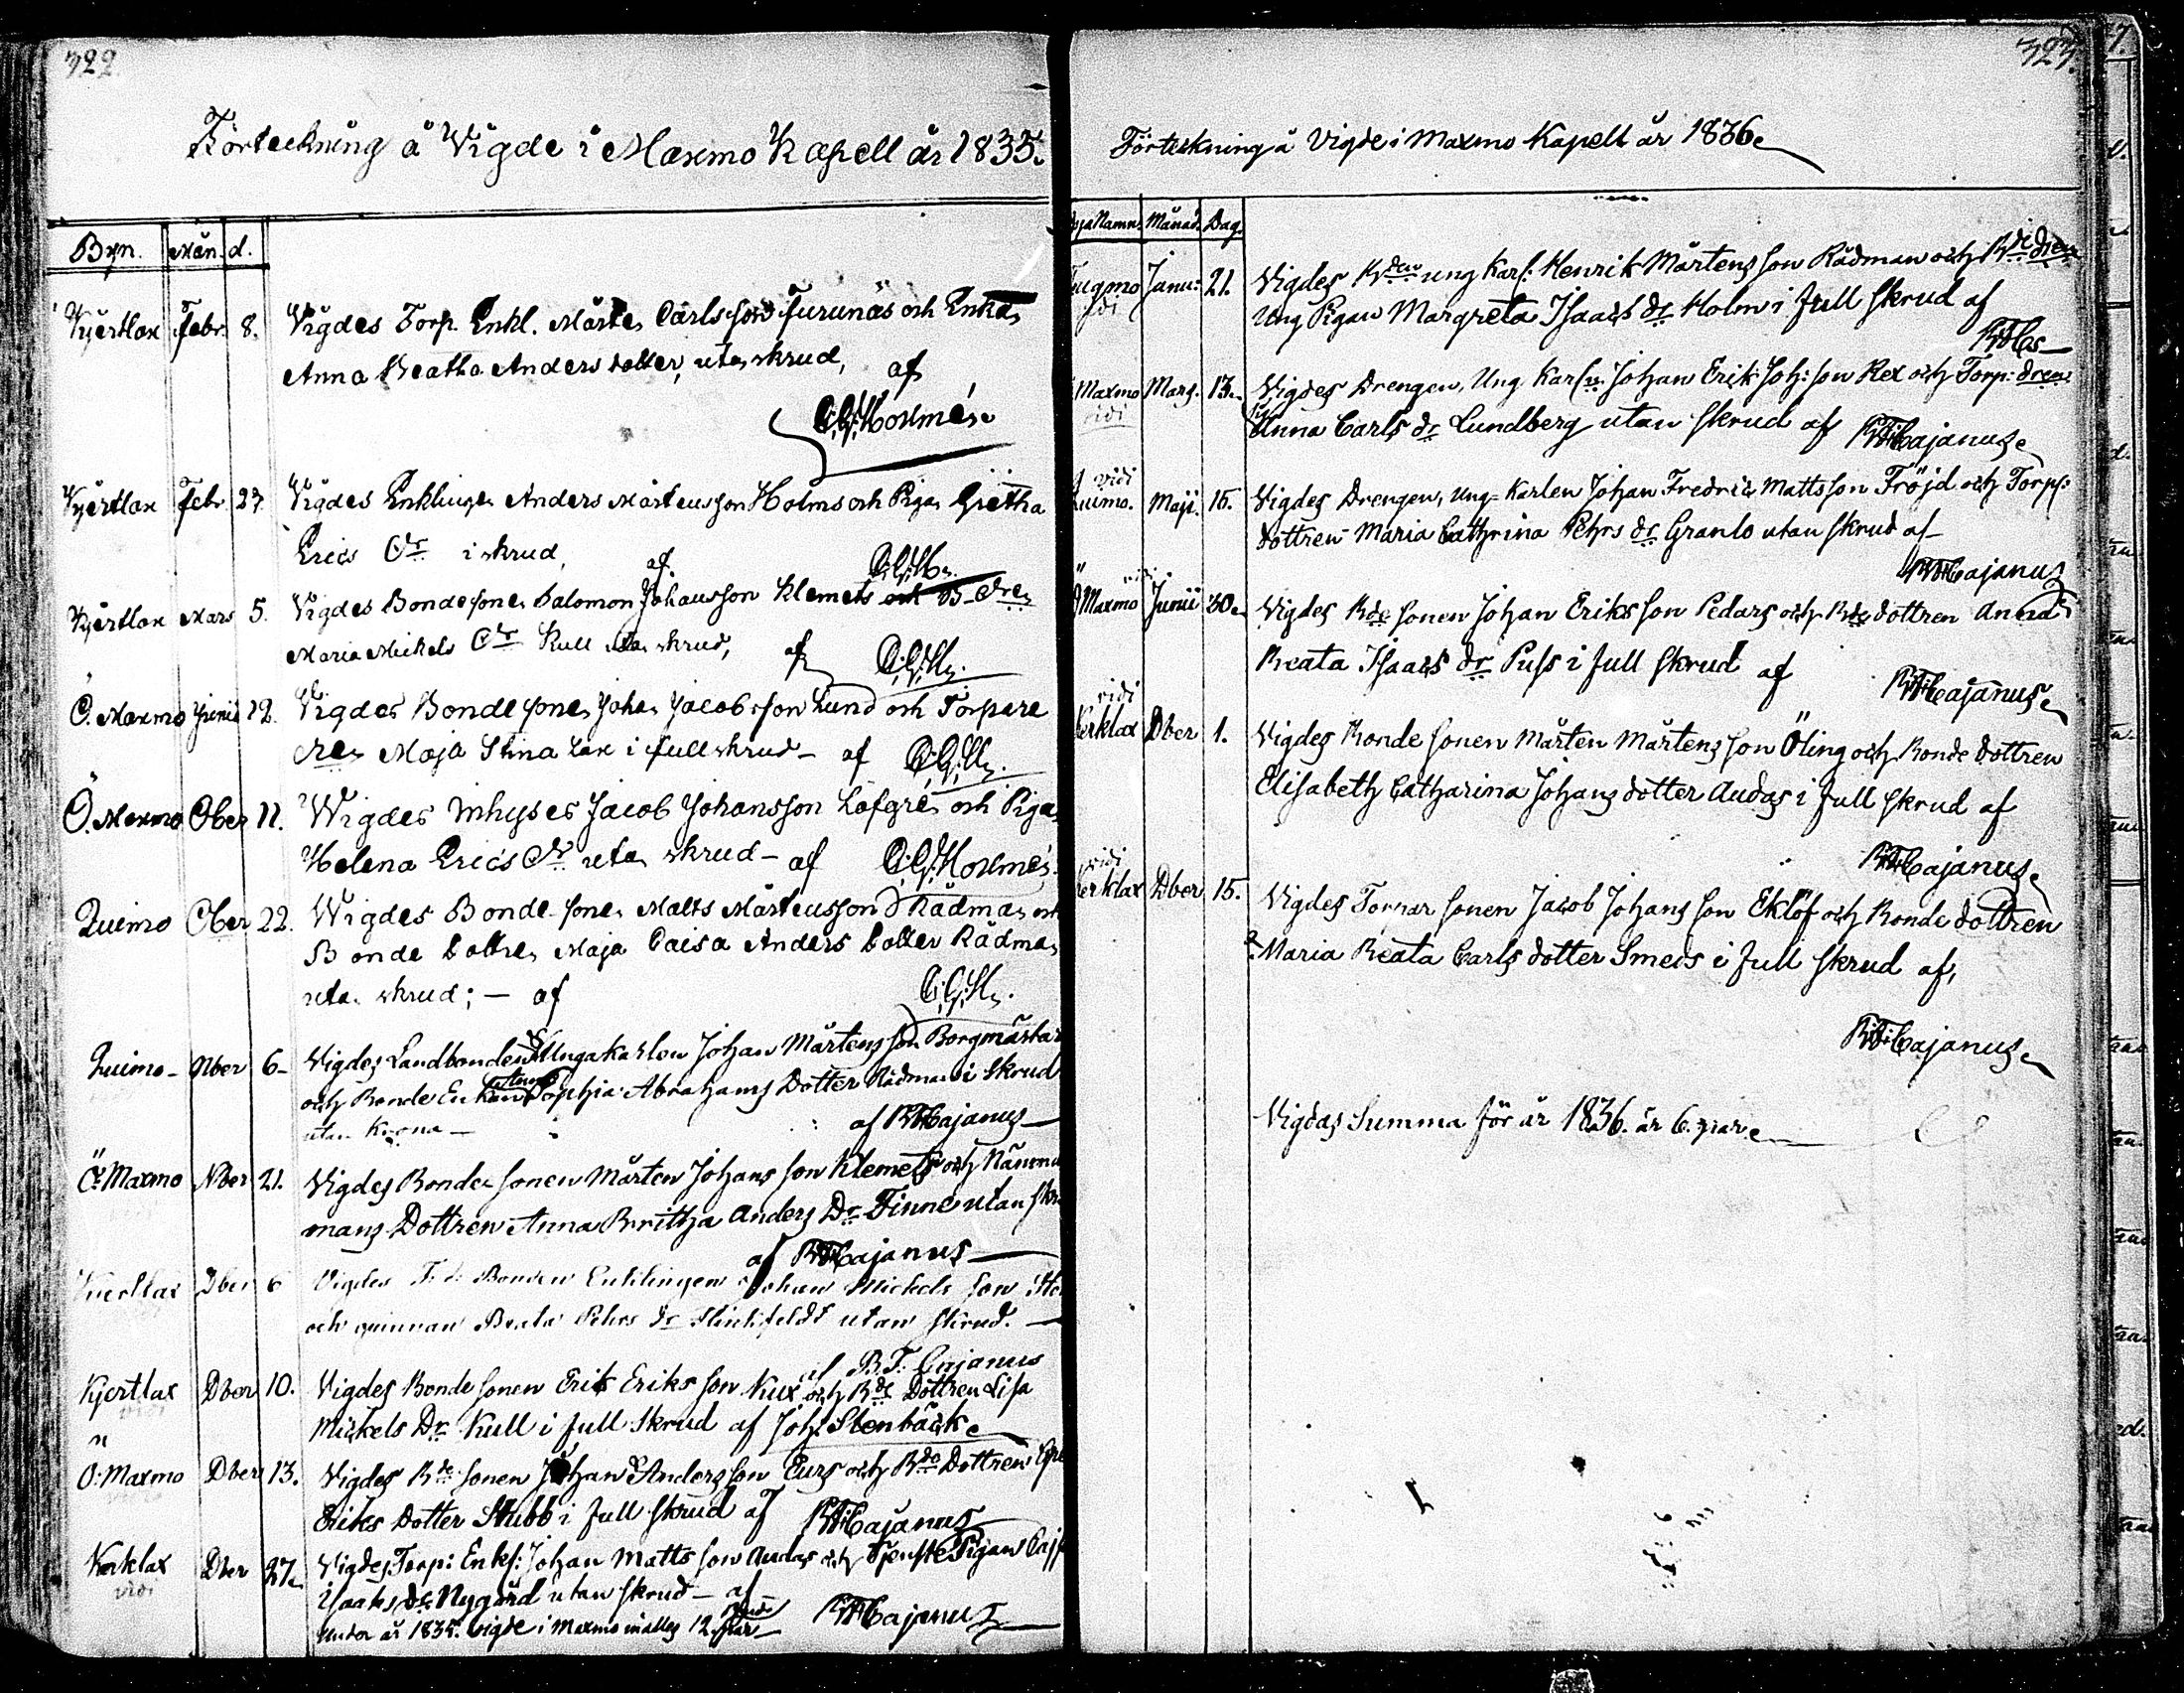 322
Förteckning å Vigde i Maxmo Kapell år 1835.
Byn. Mån. d.
Kjertlax Febr. 8. Vigdes Torp. Enkl. Mårten Carlsson Furunäs och Enkan
Anna Beatha Anders dotter, utan skrud, af
C:G:Hoxmén
Kjertlax Febr. 27. Vigdes Enklingen Anders Mårtensson Holms och Pigan Gretha
Erics dr i skrud, af C:G:Hn.
Kjertlax Mars 5. Vigdes Bondesonen Salomon Johansson Klemets och B-dren
Maria Mickels dr Kull utan skrud, af C:G:Hn.
Ö. Maxmo Junii 12. Vigdes Bondesonen Johan Jacobsson Lund och Torpare
dren Maja Stina Lax i full skrud – af C:G:Hn.
Ö. Maxmo Ober 11. Wigdes Inhyses Jacob Johansson Löfgrén och Pigan
Helena Erics dr utan skrud – af C:G:Hoxmén.
Quimo Ober 22. Wigdes Bonde sonen Matts Mårtensson Rådman och
Bonde Dottren Maja Caisa Anders Dotter Rådman
utan skrud; – af C:G:Hn.
Quimo – Nber 6 – Vigdes Landbonden Ungakarlen Johan Mårtens son Borgmästar
och Bonde Enkan Anna Sophia Abrahams Dotter Rådman i Skrud
utan Krona – af B.F.Cajanus –
Ö: Maxmo Nber 21. Vigdes Bonde sonen Mårten Johans son Klemets och Nämnde
mans Dottren Anna Britha Anders Dr Finne utan skru
af B.F.Cajanus –
Kjertlax Dber 6 Vigdes Bonden Enklingen Johan Mickels son
och qvinnan Beata Pehrs dr utan skrud. –
af B.F. Cajanus
Kjertlax Dber 10. Vigdes Bonde sonen Erik Eriks son Kux och Bde Dottren Lisa
Mickels Dr Kull i full Skrud af Joh. Stenbäck
Ö: Maxmo Dber 13. Vigdes Bde sonen Johan Anders son Eurs och Bde Dottren
Eriks Dotter Stubb i full skrud af B.F.Cajanus
Kerklax Dber 27. Vigdes Torp: Enkl: Johan Matts son Audas och Tjenste Pigan Cajs
vidi Isaaks dr Nygård utan skrud – af
Under år 1835. vigde i Maxmo inalles 12. par – B.F.Cajanus
323.
Förteckning å Vigde i Maxmo Kapell år 1836.
Bya Namn. Månad. Dag.
Tuugmo Janu: 21. Vigdes Bden ung Karl: Henrik Mårtens son Rådman och Bde dren
vidi Ung Pigan Margreta Isaacs dr Holm i full skrud af
B.F.Cs –
Maxmo Mars. 13. Vigdes Drengen, Ung Karln: Johan Erik Joh: son Rex och Torp: dren
vidi Anna Carls dr Lundberg utan skrud af B.F.Cajanus
vidi
Quimo. Maji. 15. Vigdes Drengen, Ung-Karlen Johan Fredric Mattsson Fröjd och Torps:
dottren Maria Cathrina Pehrs dr Granlo utan skrud af –
B.F.Cajanus
vidi
Ö Maxmo Junii 30. Vigdes Bde sonen Johan Eriks son Pedars och Bde dottren Anna
Beata Isaacs dr Puss i full skrud af B.F.Cajanus
vidi
Kerklax Dber 1. Vigdes Bonde sonen Mårten Mårtens son Öling och Bonde dottren
Elisabeth Catharina Johans dotter Audas i full skrud af
B.F.Cajanus
vidi
Kerklax Dber 15. Vigdes Torpar sonen Jacob Johans son Eklöf och Bonde dottren
Maria Beata Carls dotter Smeds i full skrud af,
B.F.Cajanus
Vigdas Summa för år 1836. är 6. par.